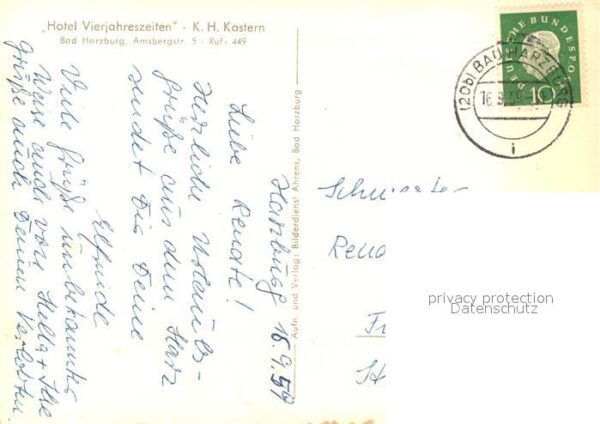 „Hotel Vierjahreszeiten" - K. H. Kastern
Bad Harzburg, Amsbergstr. 5 - Ruf: 449
Harzburg 16.9.59
Liebe Renate!
Herzliche Urlaubs-
grüße aus dem Harz
sendet Dir Deine
Elfriede
Viele Grüße unbekannter
Weise auch von Hella + Ilse
Grüße auch Deinen Verlobten
Aufn. und Verlag: Bilderdienst Ahrens, Bad Harzburg
DEUTSCHE BUNDESPOST
10
(20b) BAD HARZBURG
16.9.59
i
Schwester
Rena
Fr
St
privacy protection
Datenschutz